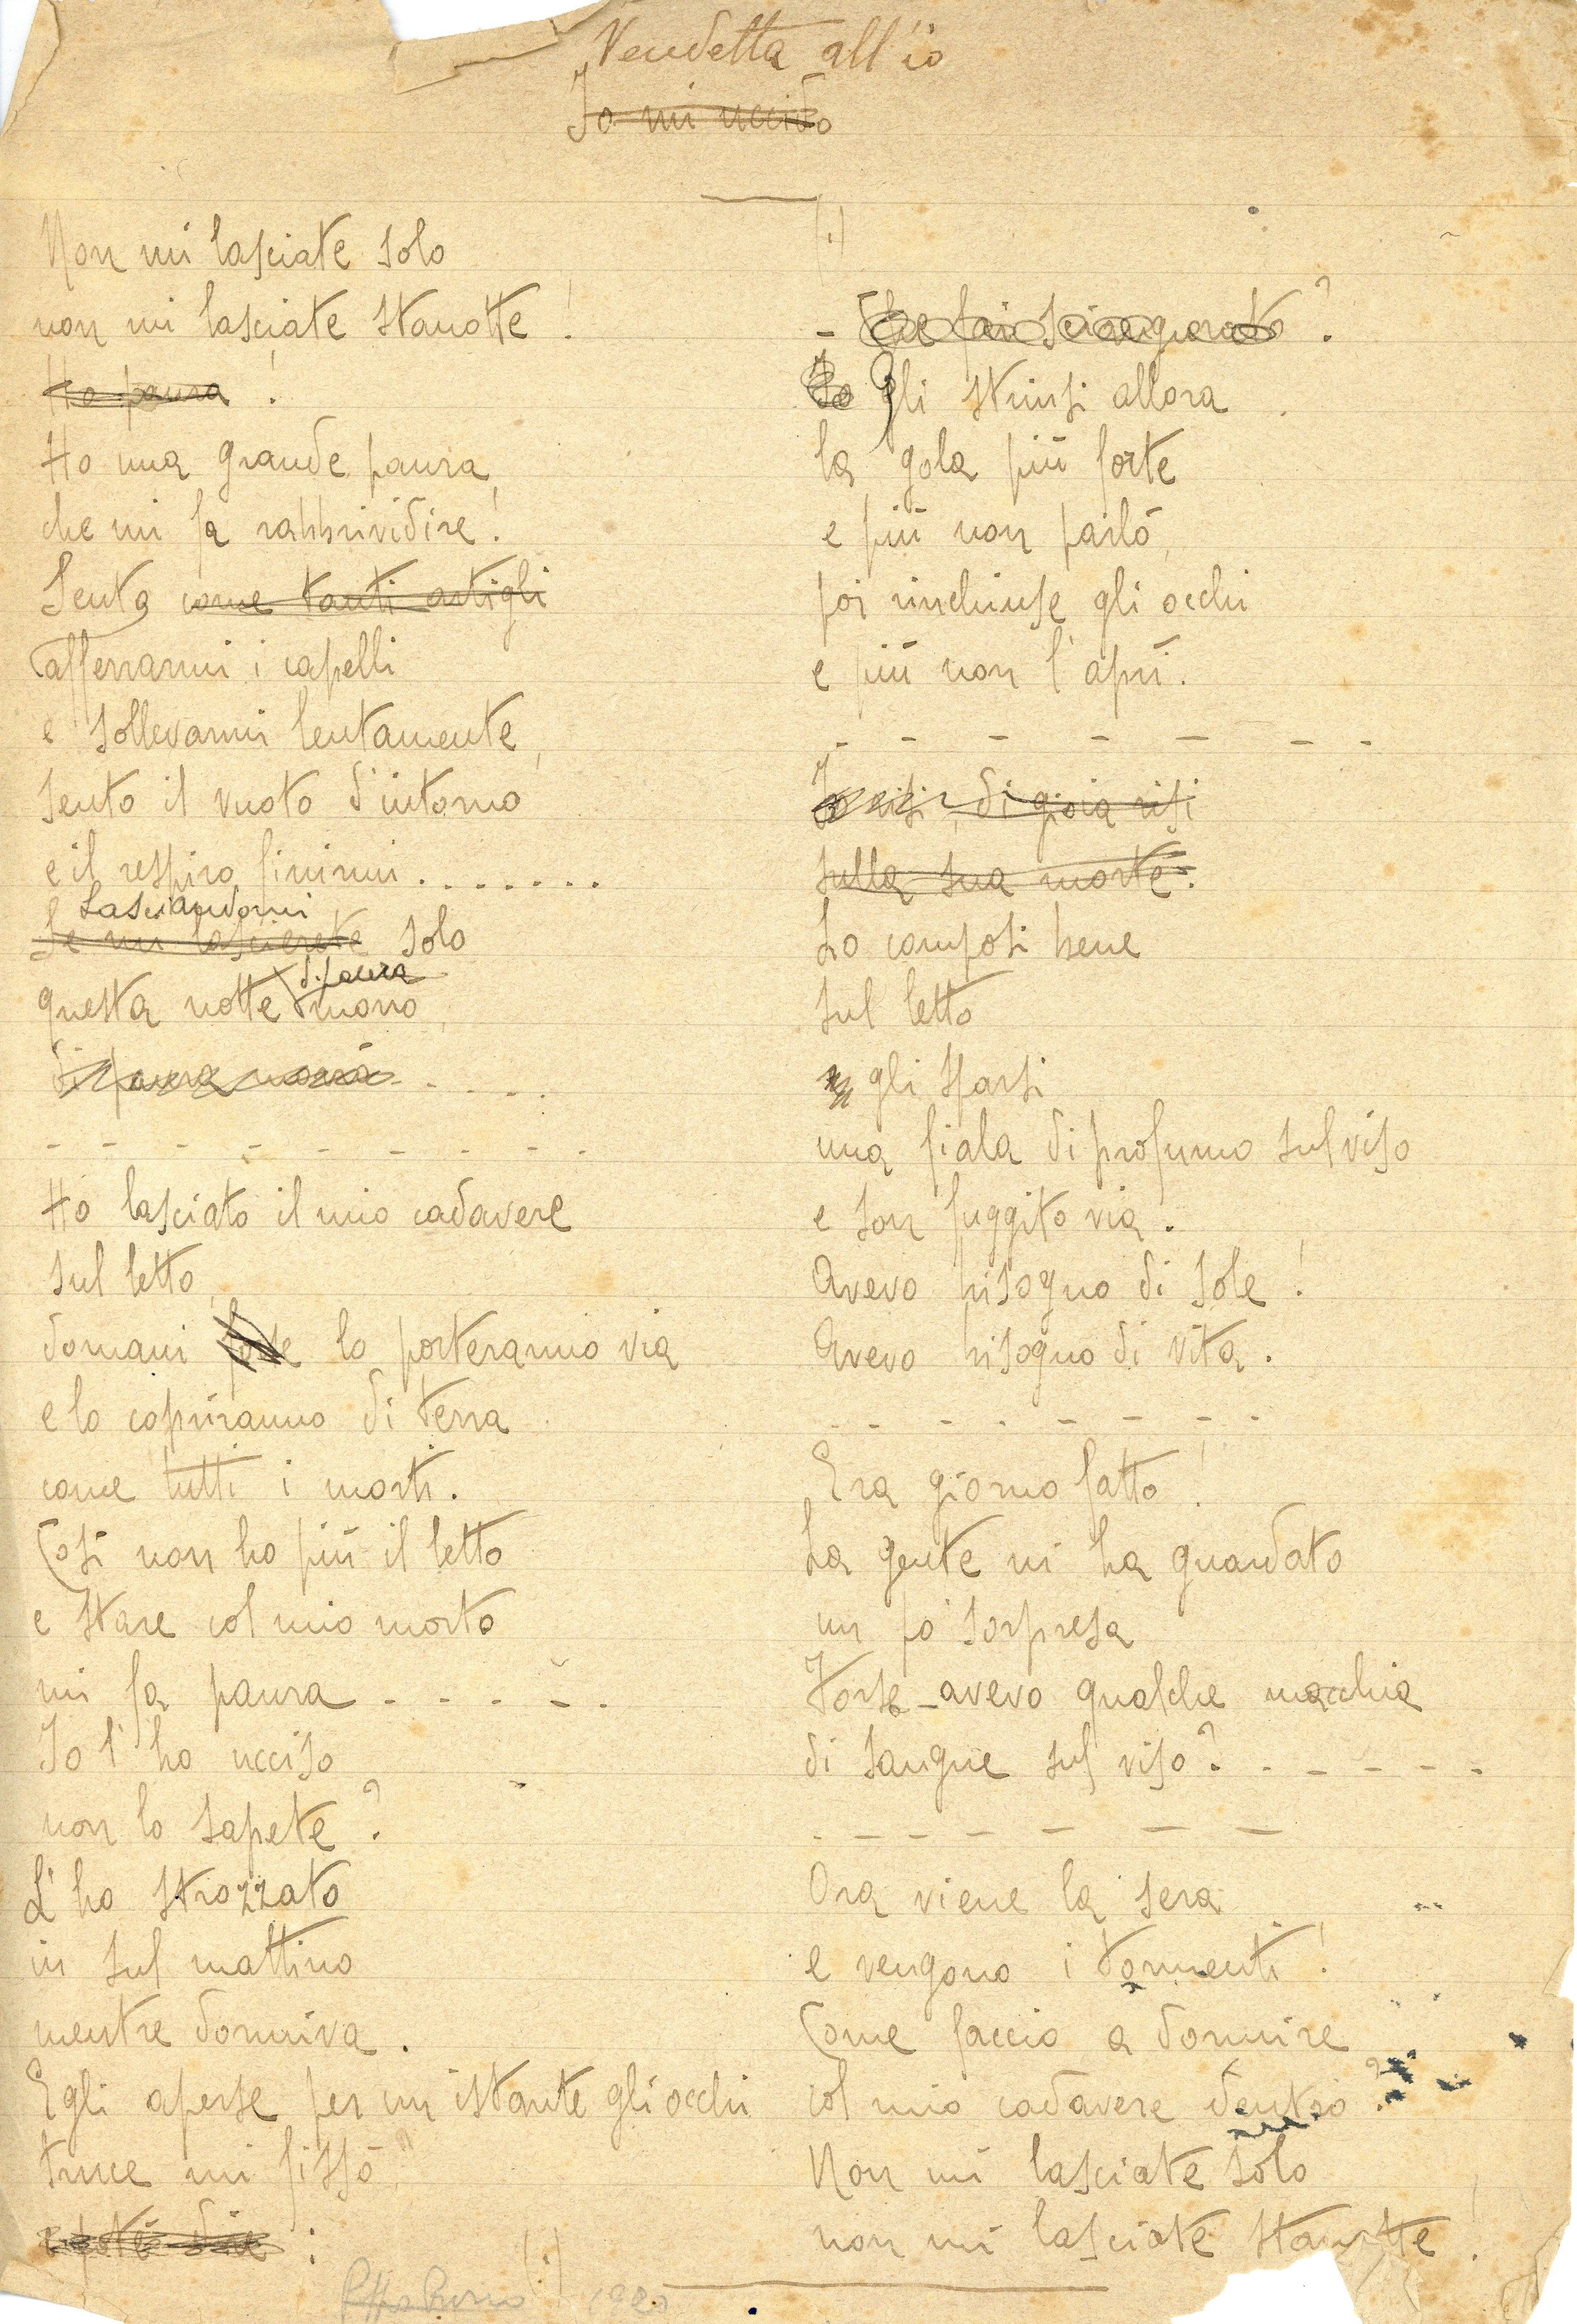 Vendetta all'io
Io mi uccido
Non mi lasciate solo
non mi lasciate stanotte!
Ho paura!
Ho una grande paura,
che mi fa rabbrividire!
Sento come tanti artigli
afferrarmi i capelli
e sollevarmi lentamente,
sento il vuoto d'intorno
e il respiro finirmi.......
Lasciandomi
Se mi lascerete solo
di paura
questa notte muoro,
di paura morrò....
- - - - - - - - -
Ho lasciato il mio cadavere
sul letto,
domani forse lo porteranno via
e lo copriranno di terra
come tutti i morti.
Così non ho più il letto
e stare col mio morto
mi fa paura - - - - -
Io l'ho ucciso
non lo sapete?
L'ho strozzato
in sul mattino
mentre dormiva.
Egli aperse per un istante gli occhi
truce mi fissò
e poté dire:
(.) 1920
(.)
- Che fai sciagurato?
Io gli strinsi allora
la gola più forte
e più non parlò,
poi rinchiuse gli occhi
e più non l'aprì.
- - - - - - - -
Io risi, di gioia risi
sulla sua morte.
Lo composi bene
sul letto
gli sparsi
una fiala di profumo sul viso
e son fuggito via.
Avevo bisogno di sole!
Avevo bisogno di vita.
- - - - - - - -
Era giorno fatto!
La gente mi ha guardato
un po' sorpresa
Forse avevo qualche macchia
di sangue sul viso? - - - - - -
- - - - - - -
Ora viene la sera
e vengono i tormenti!
Come faccio a dormire
col mio cadavere dentro?
Non mi lasciate solo
non mi lasciate stanotte!